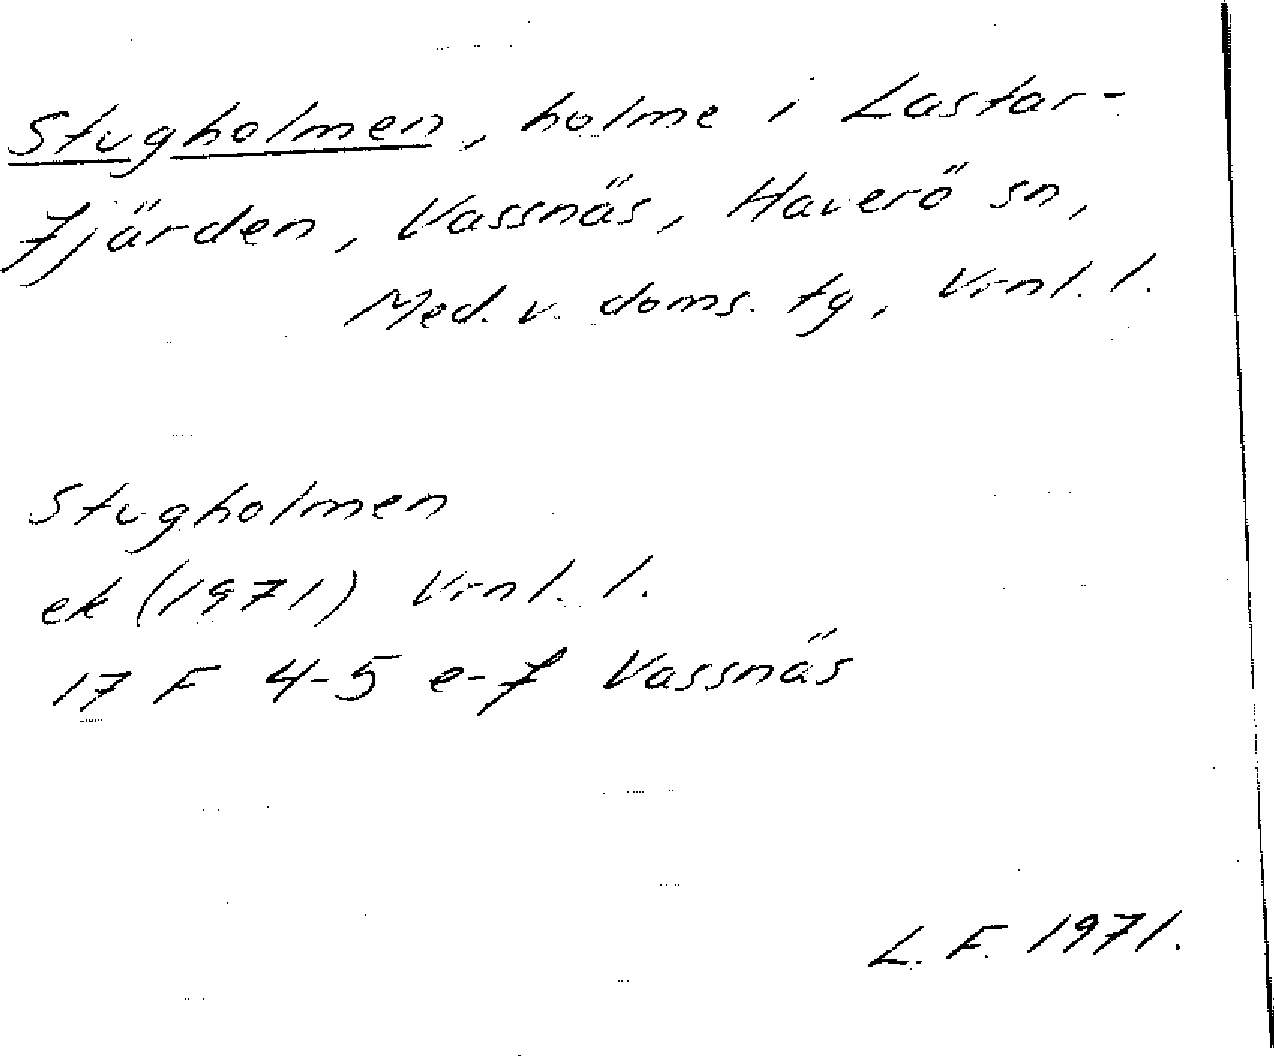 Stugholmen, holme i Lastar-
fjärden, Vassnäs, Haverö sn,
Med. v. doms. tg, Vrnl. l.
Stugholmen
ek (1971) Vrnl. l.
17 F 4-5 e-f Vassnäs
L. F. 1971.